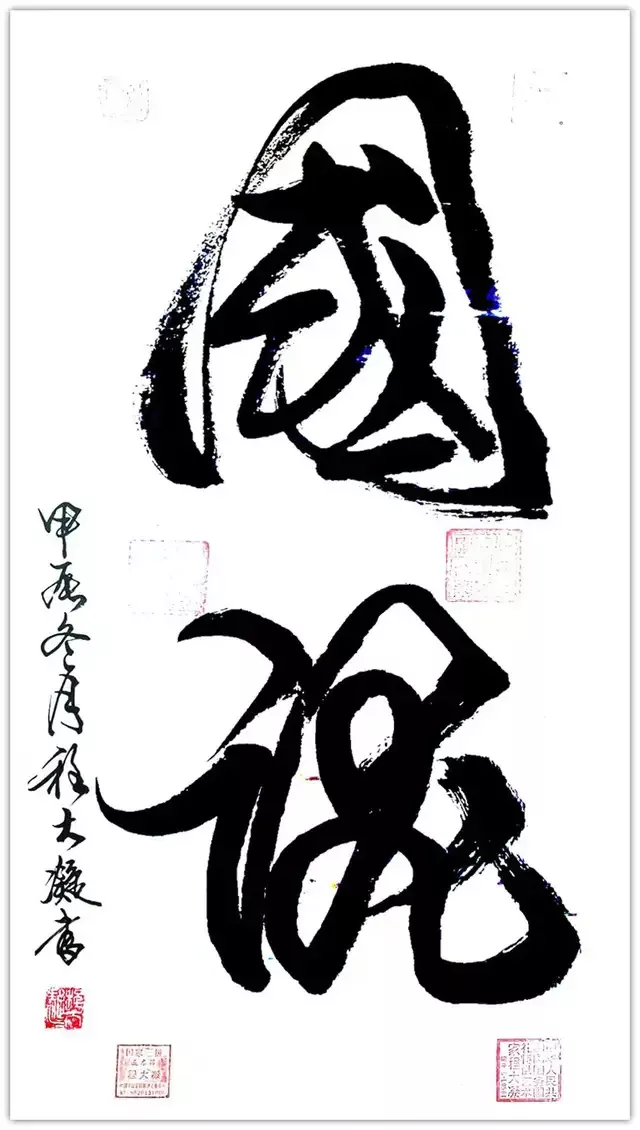 國魂
甲辰冬月程大凝書